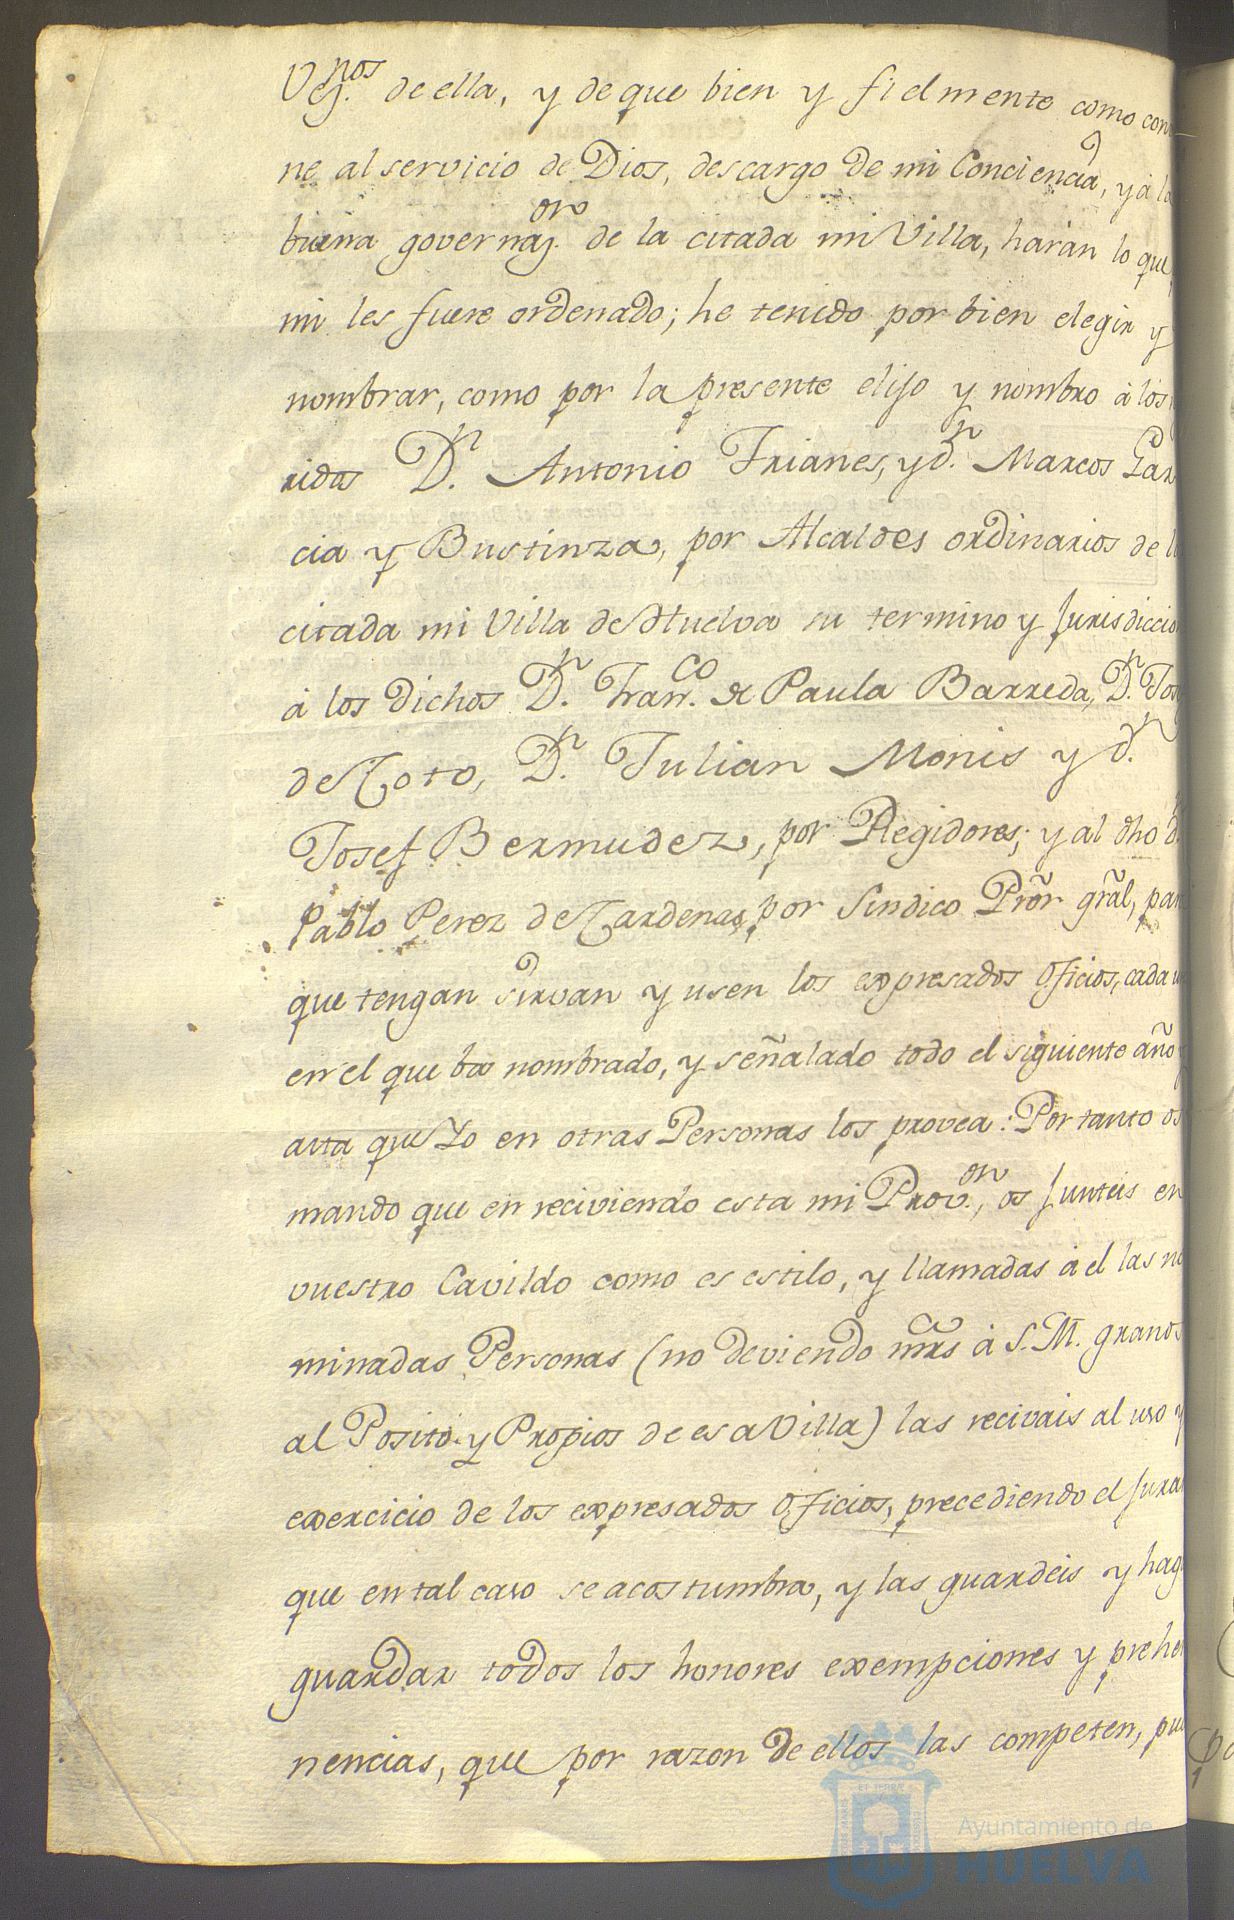 Vez.nos de ella, y de que bien y fielmente como con
ne al servicio de Dios, descargo de mi Conciencia, y à la
buena governaz.on de la citada mi Villa, haràn lo que
mi les fuere ordenado; he tenido por bien elegir y
nombrar, como por la presente elijo y nombro à los
ridos D.n Antonio Trianes, y d.n Marcos Gar
cia y Bustinza, por Alcaldes ordinarios de la
citada mi Villa de Huelva su termino y Jurisdiccio
à los dichos D.n Fran.co de Paula Barreda, D.n Jos
de Coto, D.n Julian Monis y d.n
Josef Bermudez, por Regidores; y al dho d.n
Pablo Perez de Cardenas por Sindico Prõr grãl, par
que tengan sirvan y usen los expresados Oficios, cada
en el que ba nombrado, y señalado todo el siguiente año
asta que Yo en otras Personas los provea: Por tanto os
mando que en reciviendo esta mi Prov.on, os Junteis en
vuestro Cavildo como es estilo, y llamadas à el las no
minadas Personas (no deviendo mrs à S.M. granos
al Posito y Propios de esa Villa) las recivais al uso y
exercicio de los expresados Oficios, precediendo el Jura
que en tal caso se acostumbra, y las guardeis y hag
guardar todos los honores exempciones y prehe
nencias, que por razon de ellos las competen, pue
Ayuntamiento de
HUELVA